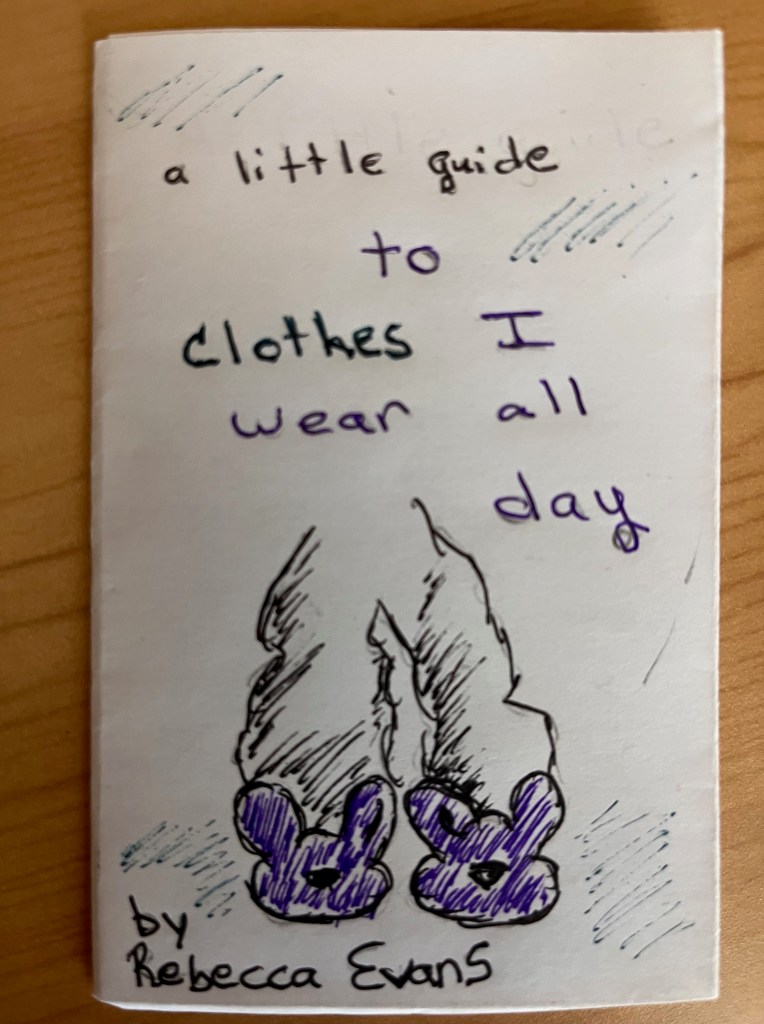 a little guide
to
clothes I
wear all
day
by
Rebecca Evans